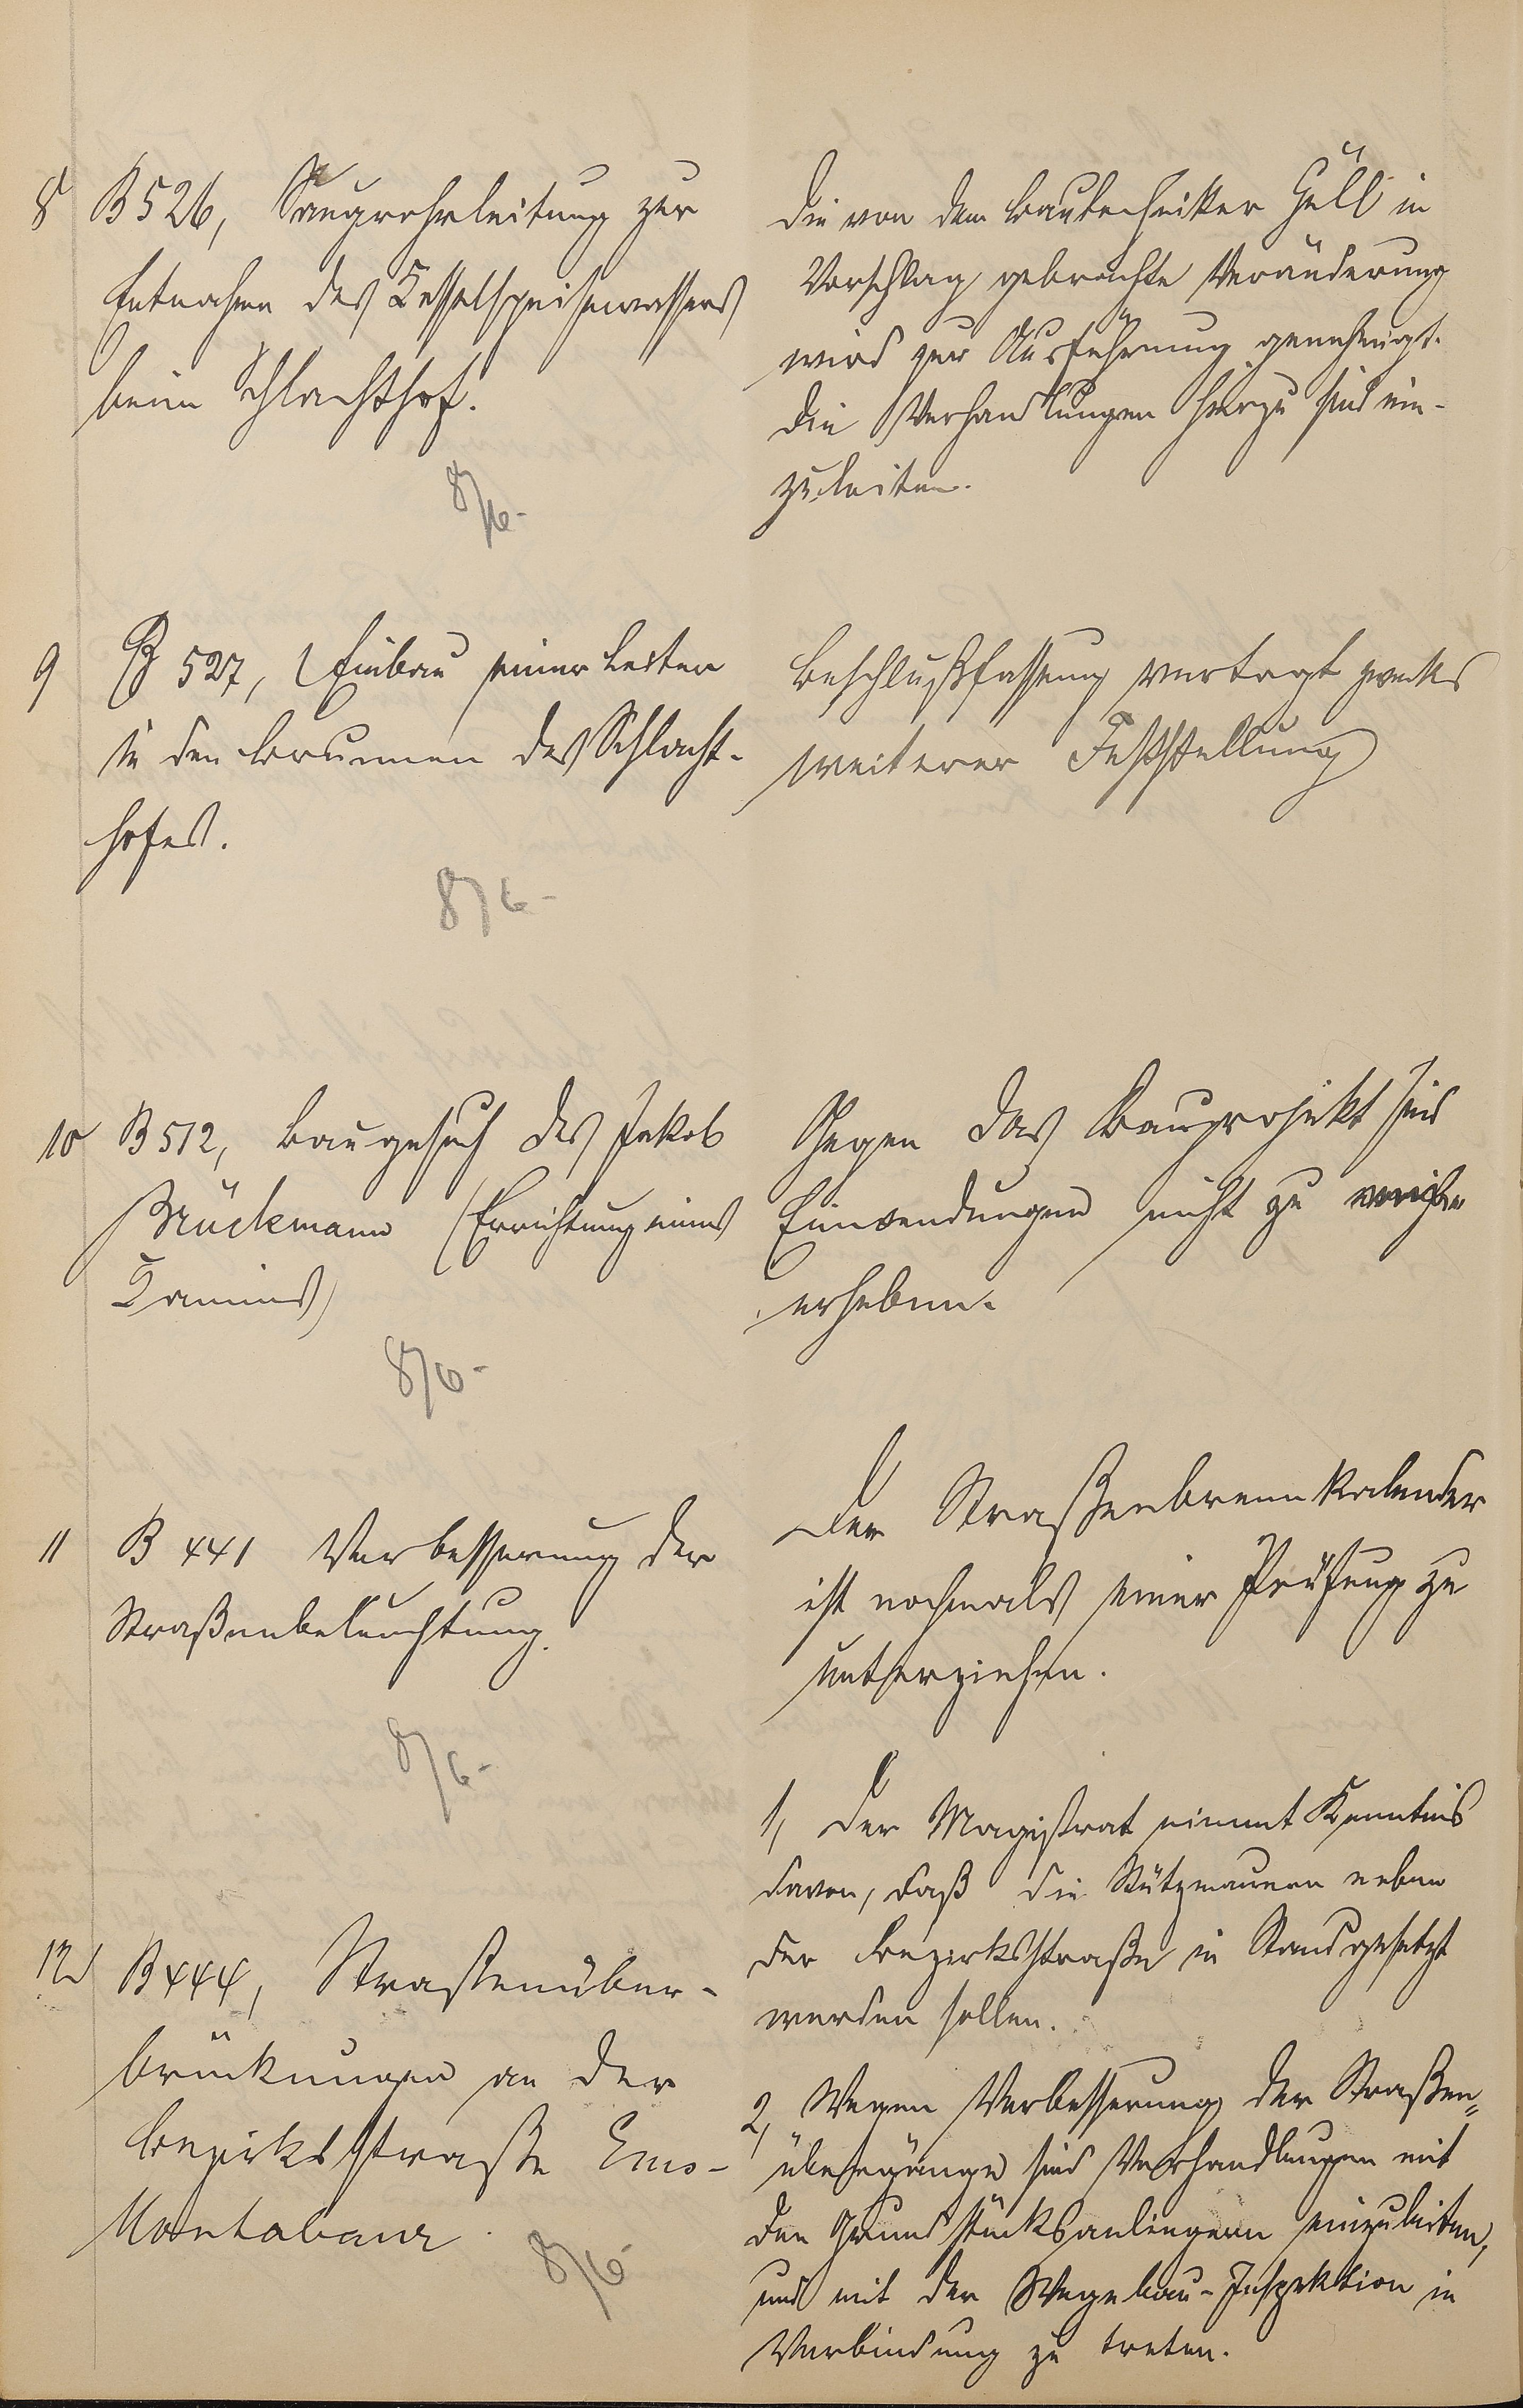 8 B 526, Saugrohrleitung zur
Entnahme des Kesselspeisewassers
beim Schlachthof.
8/6-
Die von dem Bautechniker Güll in
Vorschlag gebrachte Veränderung
wird zur Ausführung genehmigt.
Die Verhandlungen hierzu sind ein-
zuleiten.
9 B 527, Einbau einer Leiter
in den Brunnen des Schlacht-
hofes.
8/6-
Beschlußfassung vertagt zwecks
weiterer Feststellung
10 B 512, Baugesuch des Jakob
Brückmann (Errichtung eines
Kamins)
8/6-
Gegen das Bauprojekt sind
Einwendungen nicht zu
erheben.
11 B 441 Verbesserung der
Straßenbeleuchtung.
8/6-
Der Straßenbrennkalender
ist nochmals einer Prüfung zu
unterziehen.
12 B 444, Straßenüber-
brückungen an der
Bezirksstraße Ems-
Montabaur.
8/6-
1, Der Magistrat nimmt Kenntnis
davon, daß die Stützmauern neben
der Bezirksstraße in Stand gesetzt
werden sollen.
2, Wegen Verbesserung der Straßen-
übergänge sind Verhandlungen mit
den Grundstücksanliegern einzuleiten,
und mit der Wegebau-Inspektion in
Verbindung zu treten.